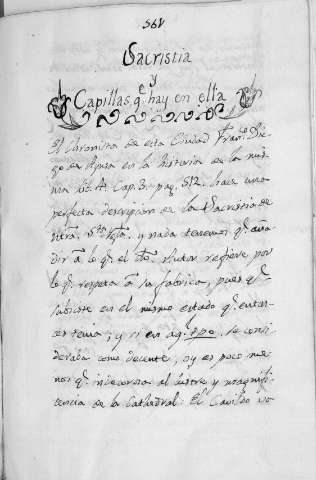 561
Sacristia
y
Capillas q.e hay en ella
El Coronista de esta Ciudad Fran.co Die
go de Aynsa en la historia de la mis
ma lib. 4. Cap. 3. pag. 512. hace una
perfecta descripcion de la Sacristia de
ntra. S.ta Igla. y nada tenemos q.e aña
dir à lo q.e el dho. Autor refiere, por
lo q.e respeta à su fabrica, pues q.e
subsiste en el mismo estado q.e enton
ces tenia; y si en aq.l tpo. se consi
deraba como decente, oy es poco me
nos q.e indecorosa al lustre y magnifi
cencia de la Cathedral. El Cavildo